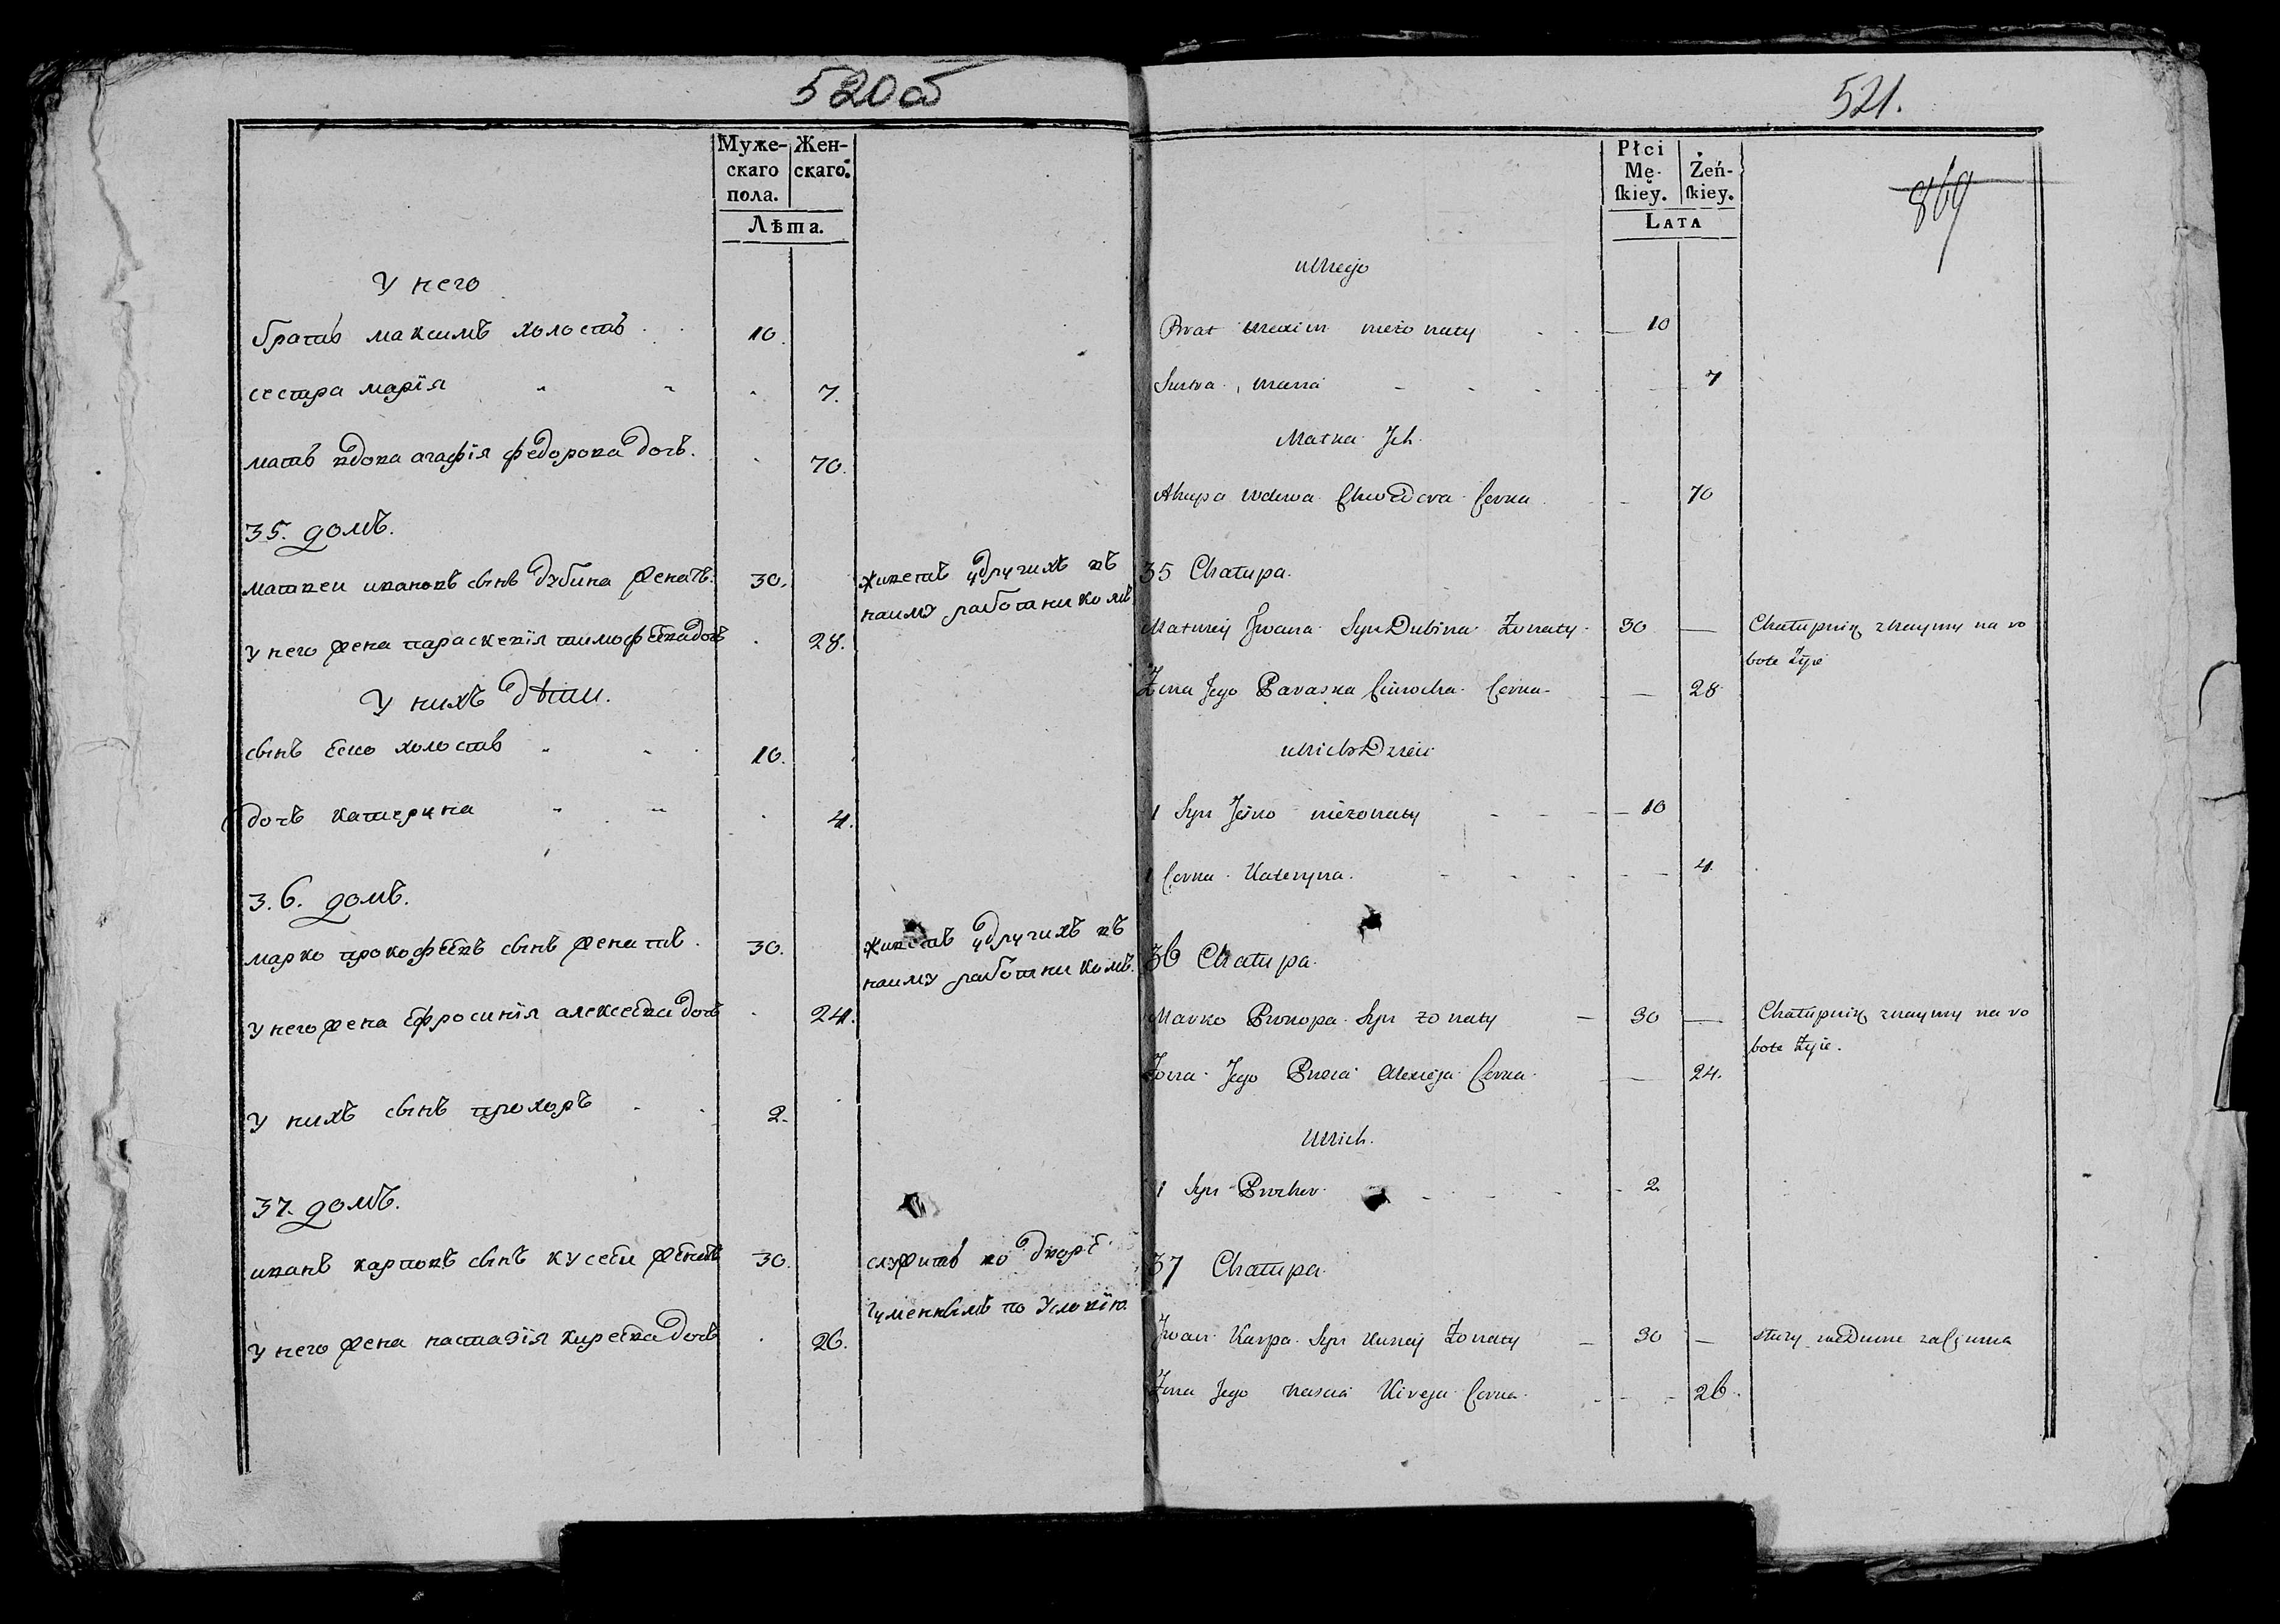 520 об
Муже-
скаго
пола.
Жен-
скаго.
Лѣта.
У него
братъ максимъ холостъ 10.
сестра марїя 7.
мать вдова агафія федорова дочь. 70.
35. домъ.
матвеи ивановъ сынъ дубина женатъ. 30.
живетъ у другихъ въ
наимѣ работникомъ
у него жена параскевія тимофѣева дочь 28.
У нихъ дѣти.
сынъ еско холостъ 10.
дочь катерина 4.
3.6. домъ.
марко прокофѣевъ сынъ женатъ. 30.
живетъ у другихъ въ
наиму работникомъ.
у него жена ефросинія алексѣева дочь 24.
у нихъ сынъ прохоръ 2.
37. домъ.
иванъ карповъ сынъ кусеи женатъ 30.
служитъ во дворѣ
гуменнымъ по условїю.
у него жена настазія кирѣева дочь 26.
521.
869
Płci
Mę-
ſkiey.
Żeń-
ſkiey.
Lata
u Niego
Brat Maxim nieżonaty 10
Siostra Maria 7
Matka Jch.
Ahapa wdowa Chwedora Corka 70
35 Chałupa.
Matwiey Jwana Syn Dubina Żonaty 30 — Chałupnik z naymy na ro
bote żyie
Żona Jego Paraska Cimocha Corka 28
u Nich Dzieci
1 Syn Jesko nieżonaty 10
1 Corka Kateryna. 4
36 Chałupa.
Marko Prokopa Syn żonaty — 30 — Chałupnik z naymy na ro
bote żyie.
Żona Jego Prosia Alexieja Corka 24.
u Nich.
1 Syn Prochor 2
37 Chałupa.
Jwan Karpa Syn Kusiey Żonaty — 30 —
Żona Jego Nascia Kireja Corka 26.